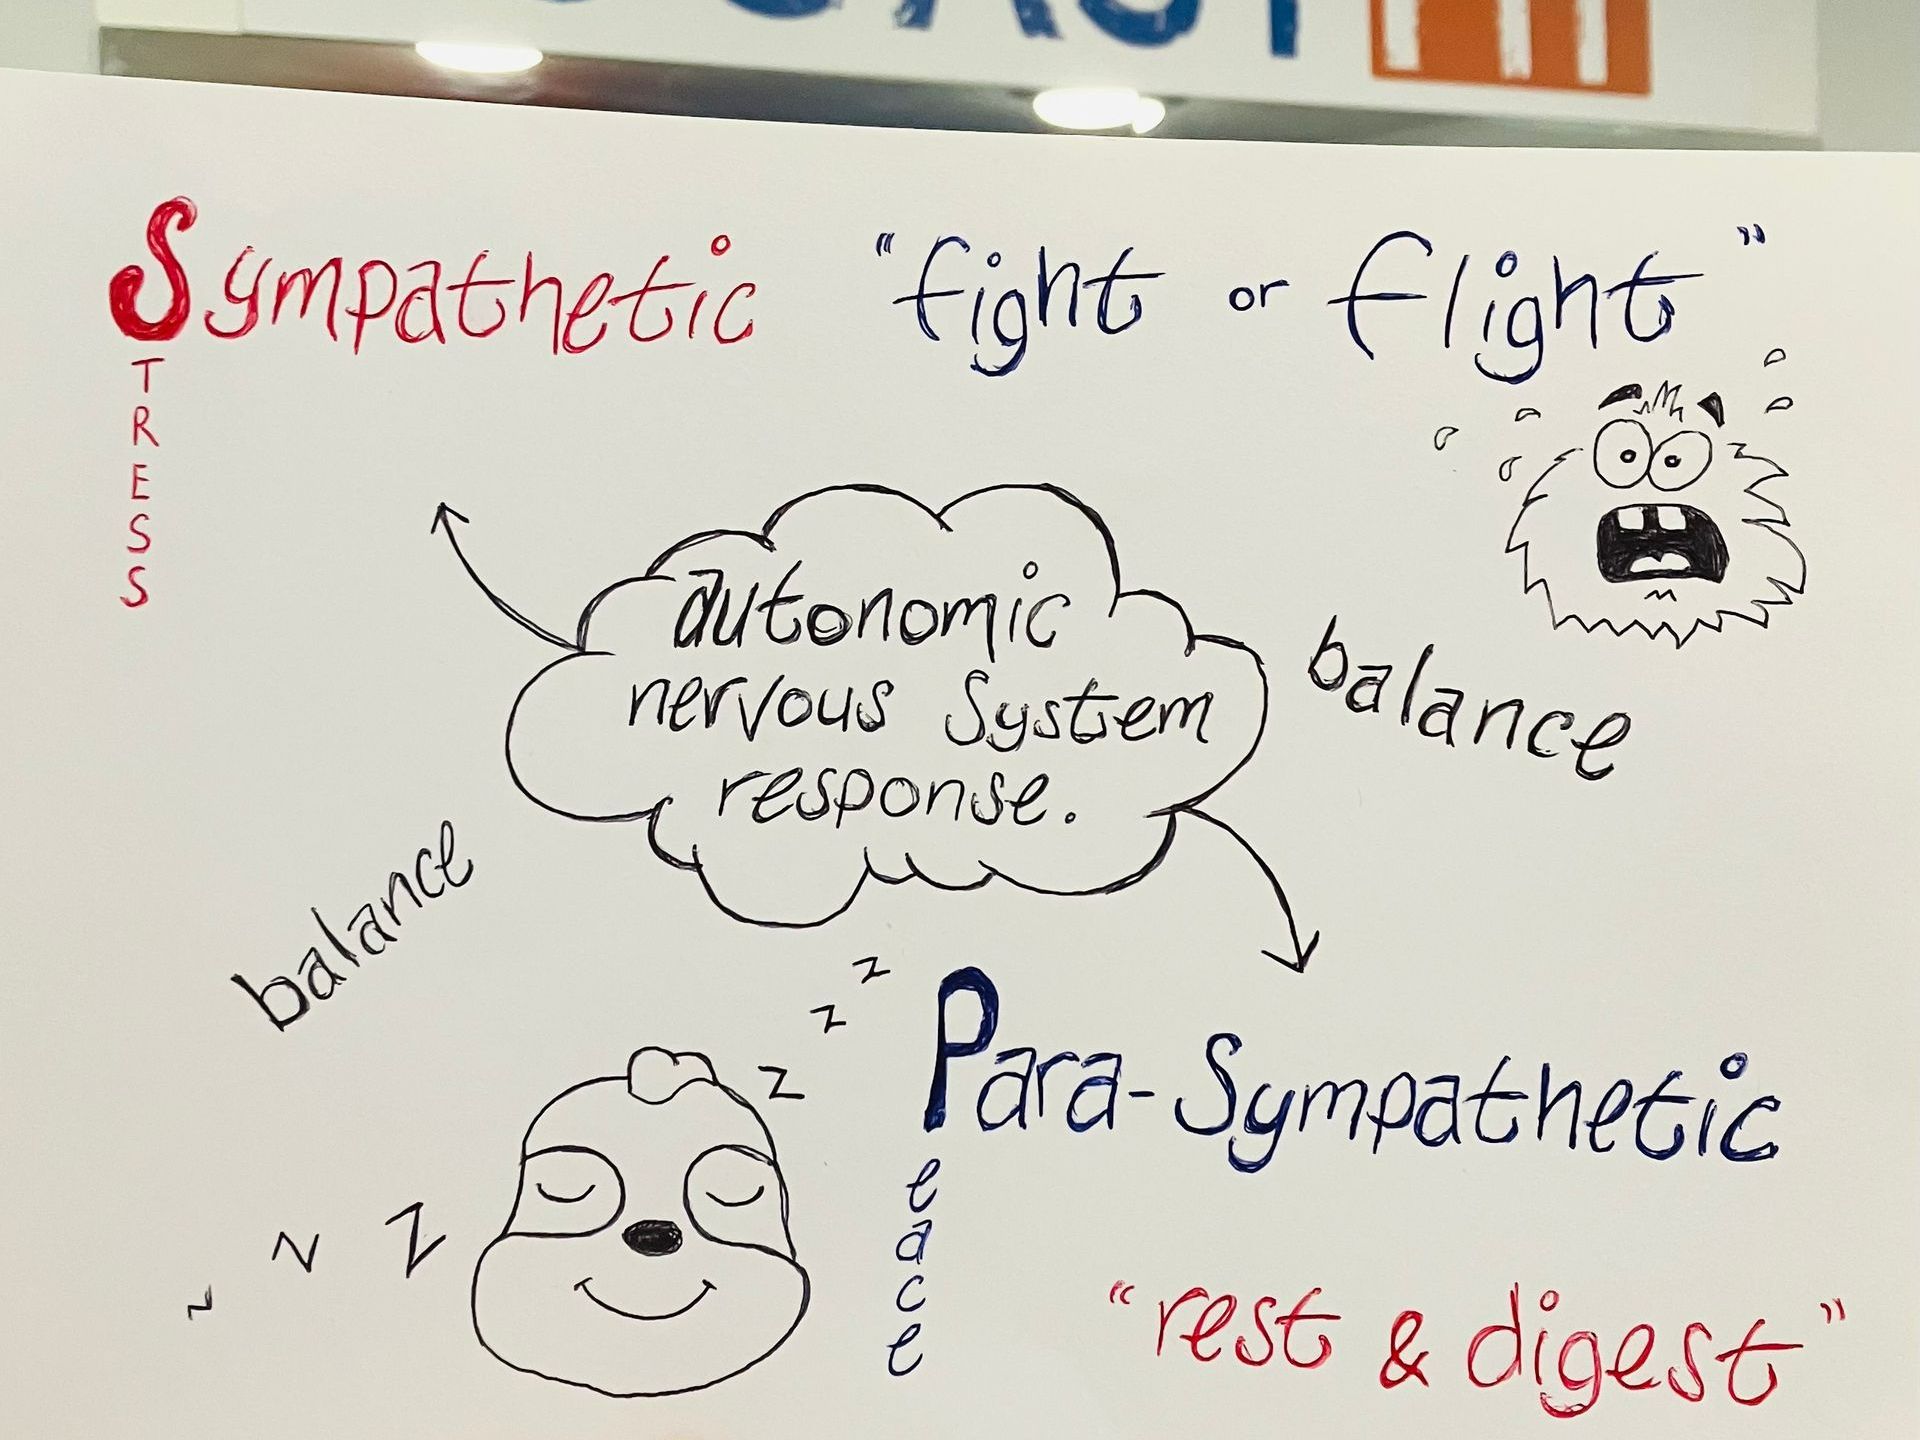 Sympathetic "fight or flight"
STRESS
autonomic
nervous System
response.
balance
balance
z
z
z
Para-Sympathetic
Peace
z z z
"rest & digest"